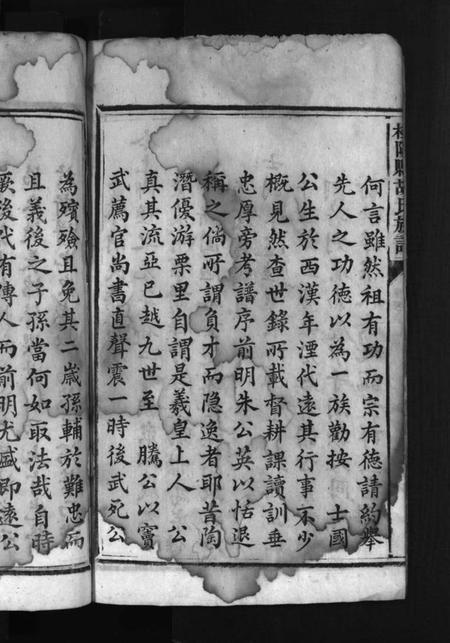 桂陽縣胡氏族譜
何言雖然祖有功而宗有德請約舉
先人之功德以為一族勸按 士國
公生於西漢年湮代遠其行事不少
概見然查世錄所載督耕課讀訓垂
忠厚旁考譜序前明朱公英以恬退
稱之倘所謂負才而隐逸者耶昔陶
潛優游栗里自謂是羲皇上人 公
真其流亞已越九世至 騰公以竇
武薦官尚書直聲震一時後武死公
為殯殮且免其二歲孫輔於難忠而
且義後之子孫當何如取法哉自時
厥後代有傳人而前明尤盛即遠公